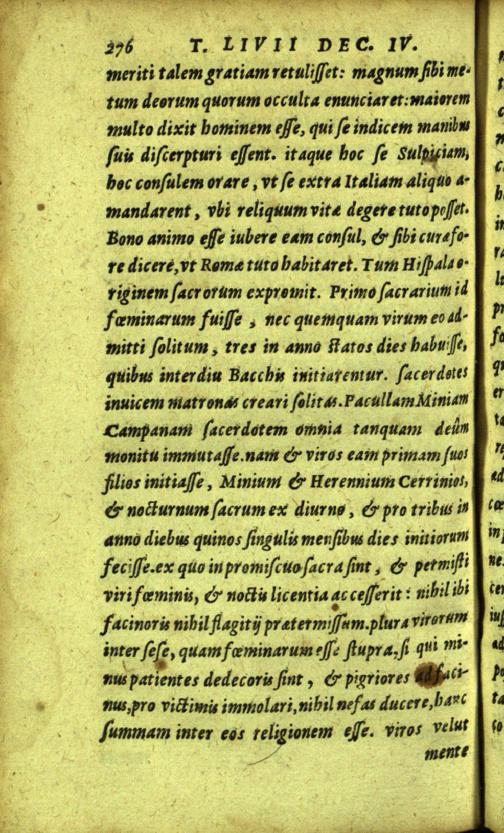 276 T. LIVII DEC. IV.
meriti talem gratiam retulisset: magnum sibi me-
tum deorum quorum occulta enunciaret: maiorem
multo dixit hominem esse, qui se indicem manibus
suis discerpturi essent. itaque hoc se Sulpiciam,
hoc consulem orare, vt se extra Italiam aliquo a-
mandarent, vbi reliquum vitæ degere tuto posset.
Bono animo esse iubere eam consul, & sibi curæ fo-
re dicere, vt Romæ tuto habitaret. Tum Hispala o-
riginem sacrorum expromit. Primo sacrarium id
fœminarum fuisse, nec quemquam virum eo ad-
mitti solitum, tres in anno statos dies habuisse,
quibus interdiu Bacchis initiarentur. sacerdotes
inuicem matronas creari solitas. Pacullam Miniam
Campanam sacerdotem omnia tanquam deûm
monitu immutasse. nam & viros eam primam suos
filios initiasse, Minium & Herennium Cerrinios,
& nocturnum sacrum ex diurno, & pro tribus in
anno diebus quinos singulis mensibus dies initiorum
fecisse. ex quo in promiscuo sacra sint, & permisti
viri fœminis, & noctis licentia accesserit: nihil ibi
facinoris nihil flagitij prætermissum. plura virorum
inter sese, quam fœminarum esse stupra, si qui mi-
nus patientes dedecoris sint, & pigriores ad faci-
nus, pro victimis immolari, nihil nefas ducere, hanc
summam inter eos religionem esse. viros velut
mente